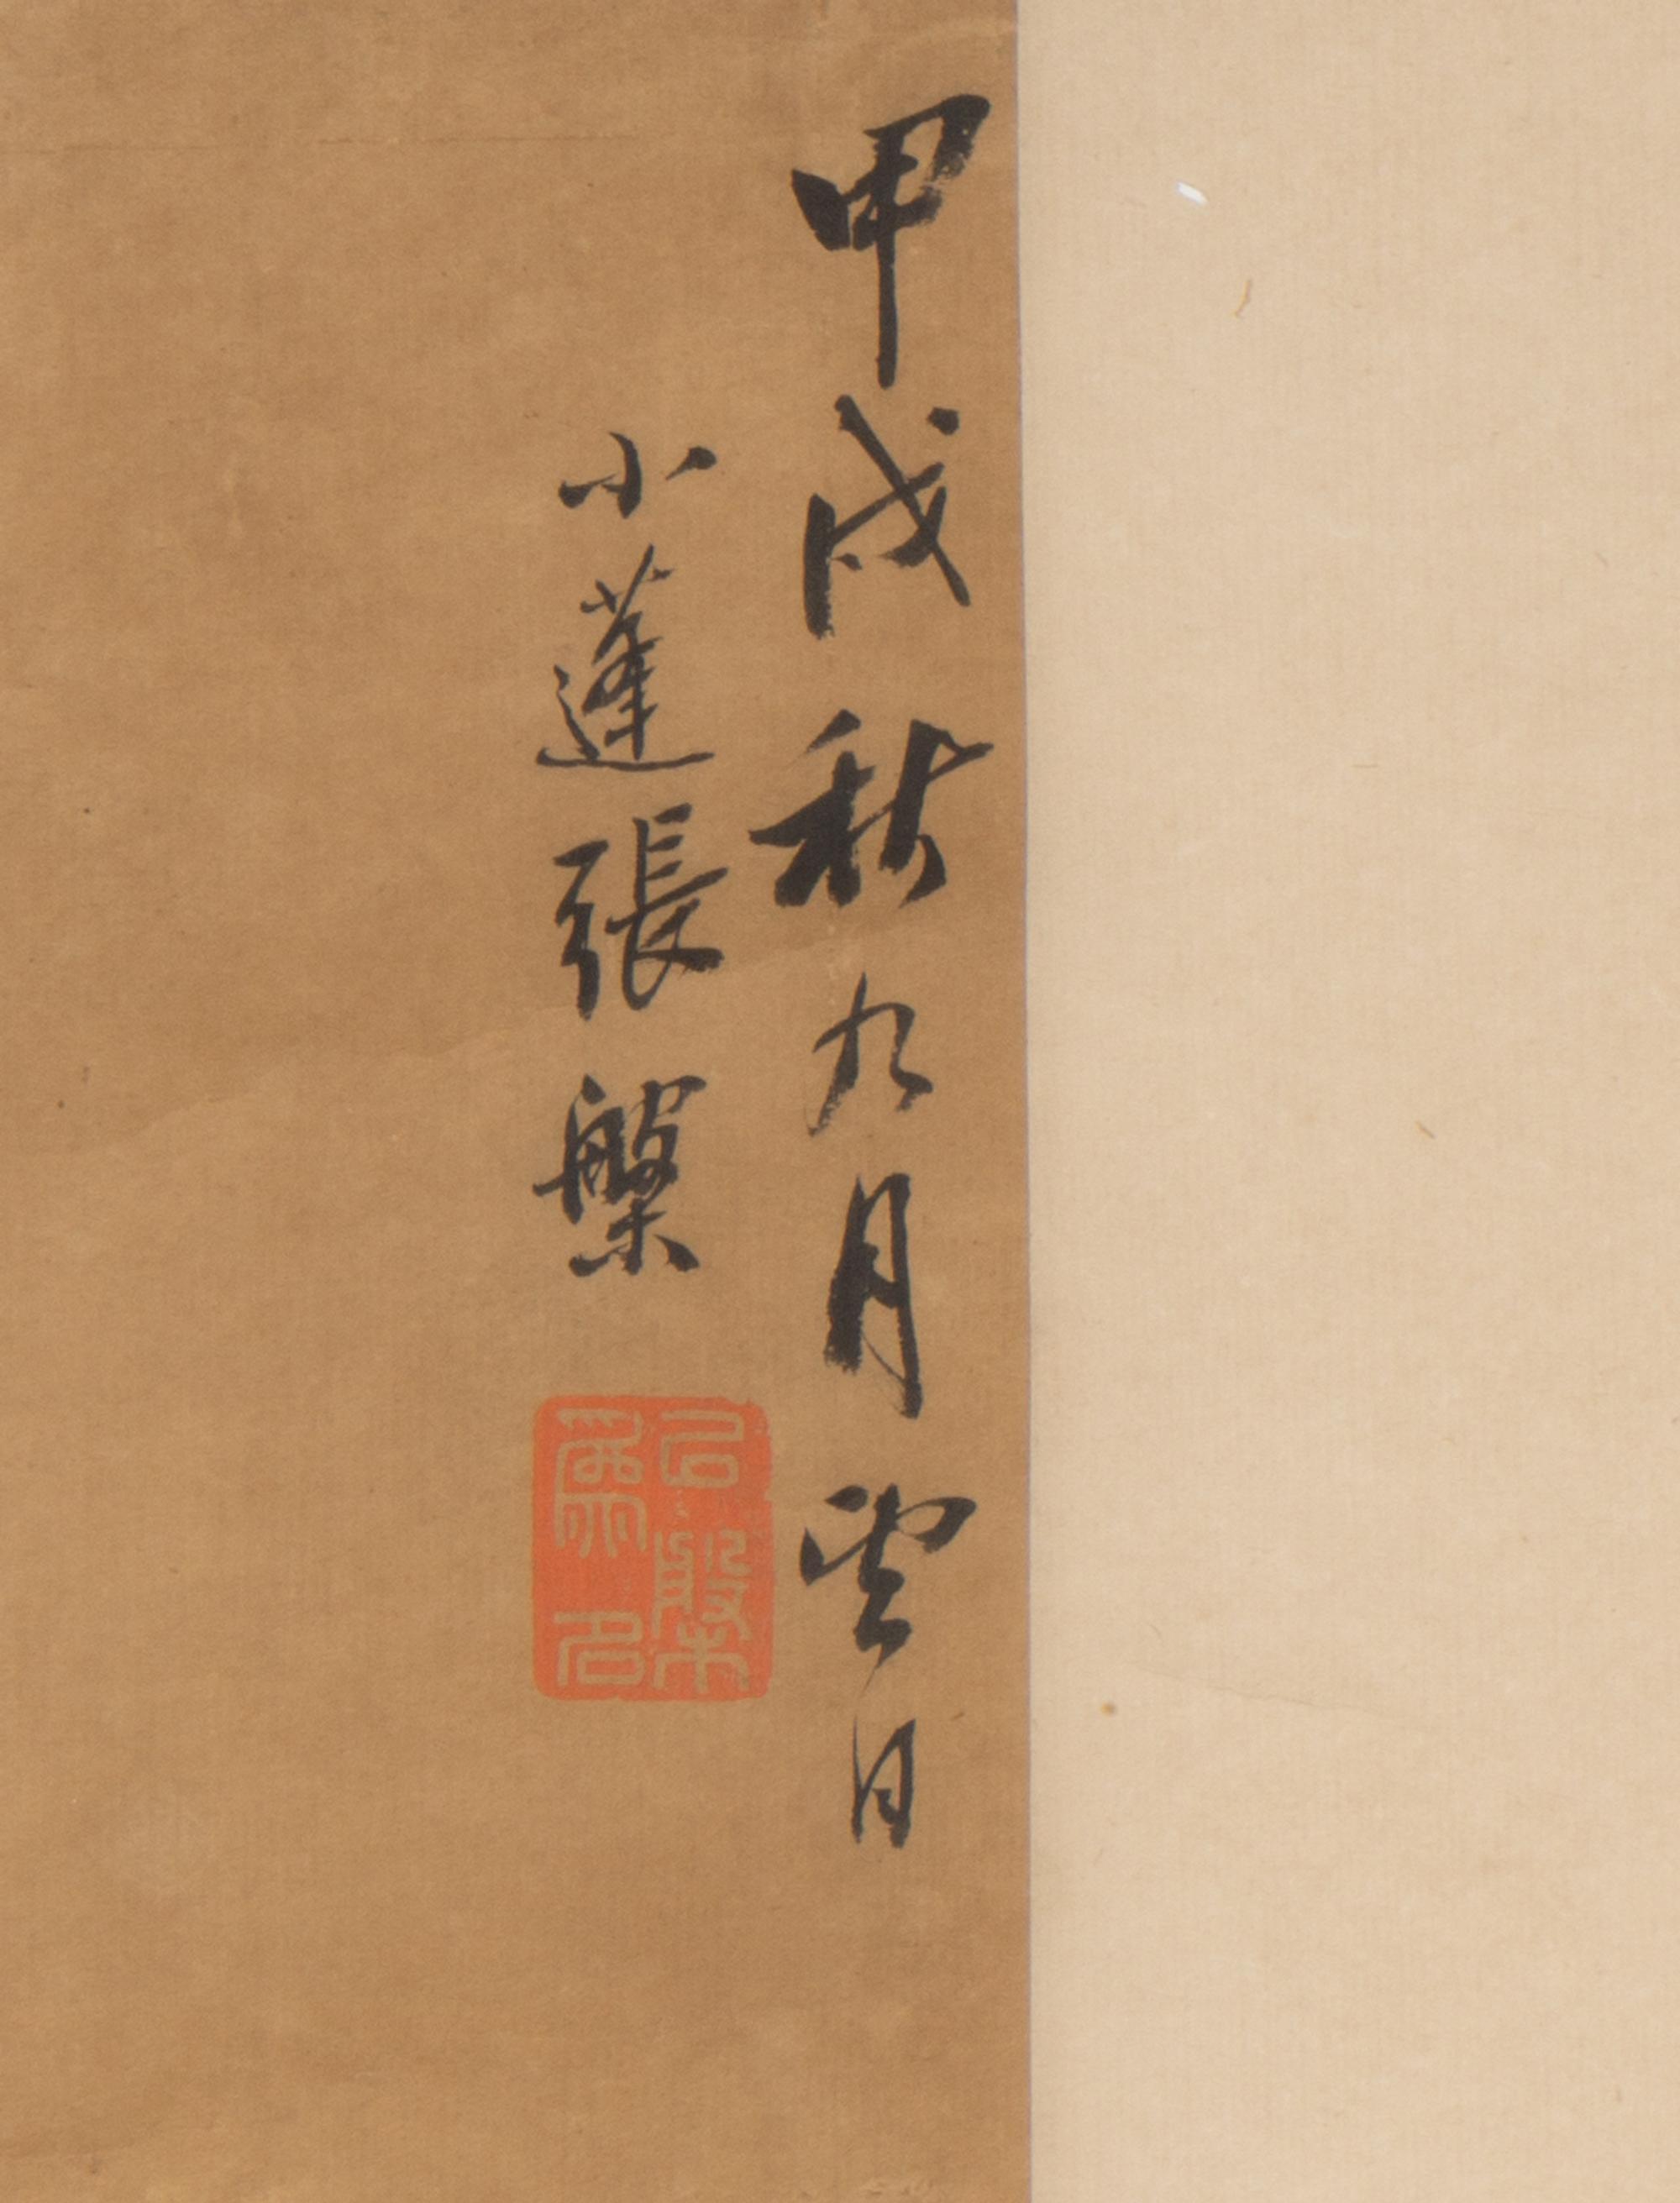 甲戌秋九月望日
小蓬張槃
以槃爲名